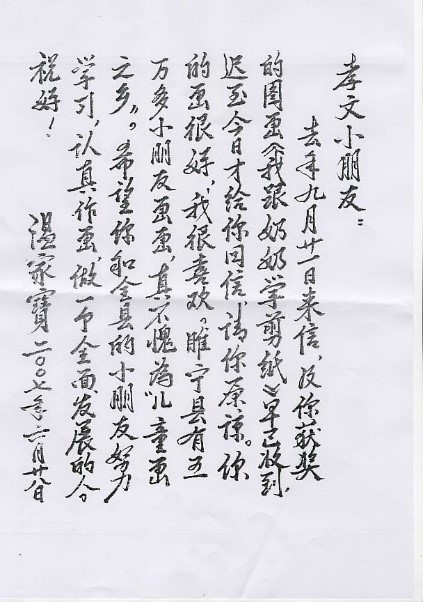 孝文小朋友：
去年九月廿一日来信，及你获奖
的图画《我跟奶奶学剪纸》早已收到，
迟至今日才给你回信，请你原谅。你
的画很好，我很喜欢。睢宁县有五
万多小朋友画画，真不愧为“儿童画
之乡”。希望你和全县的小朋友努力
学习，认真作画，做一个全面发展的人。
祝好！
温家寶 二〇〇七年六月廿八日